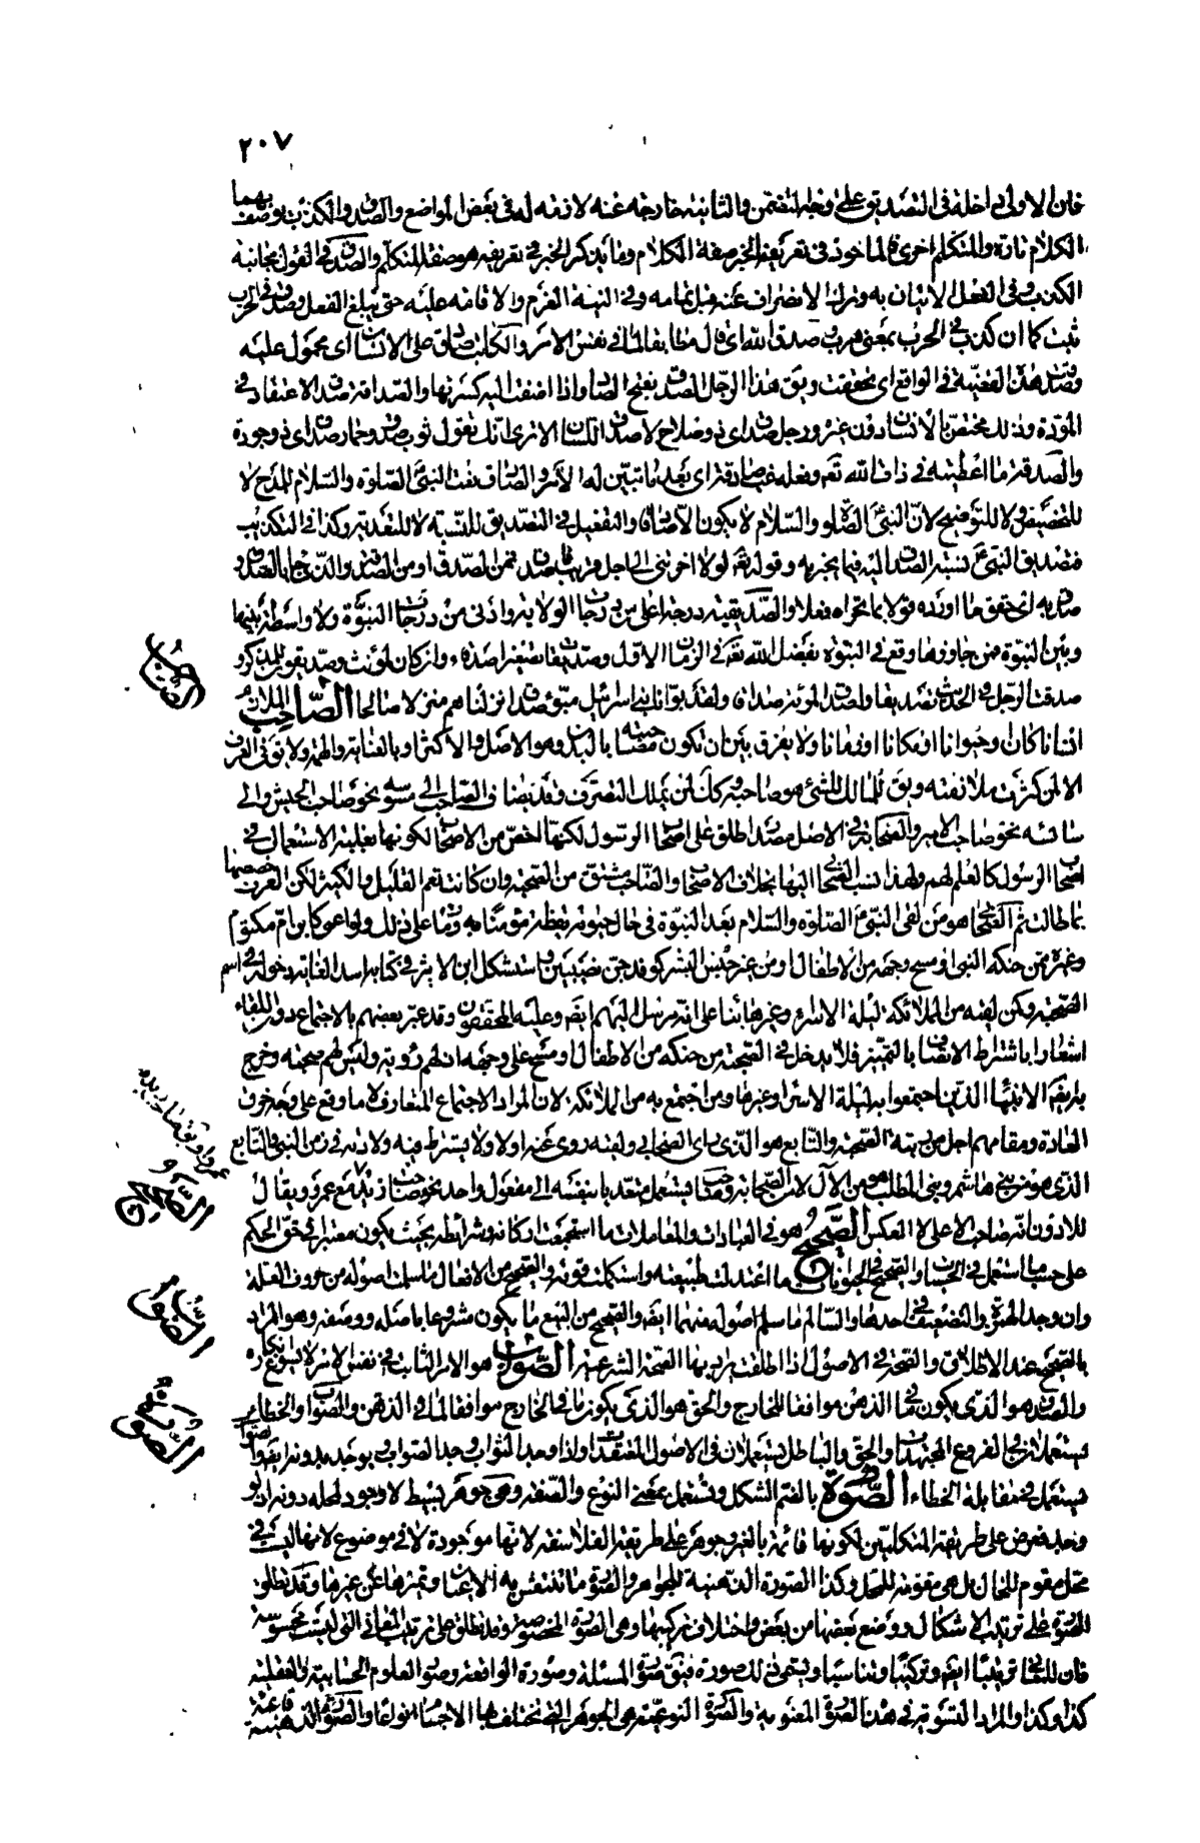 ٢٠٧
فان الاولى داخلة في التصديق على وجه التضمن والثانية خارجة عنه لازمة له في بعض المواضع والصدق والكذب يوصف بهما
الكلام تارة والمتكلم اخرى فالماخوذ في تعريف الخبر صفة الكلام وما يذكر الخبر في تعريفه هو صفة المتكلم والصدق في القول مجانبة
الكذب وفي الفعل الاتيان به وترك الانصراف عنه قبل تمامه وفي النية العزم والاقامة عليه حتى يبلغ الفعل وصدق في الحرب
ثبت كما ان كذب في الحرب بمعنى هرب وصدق الله اى قال مطابقا لما في نفس الامر والكاتب صادق على الانسان اى محمول عليه
وصدق هذه القضية في الواقع اى تحققت ويق هذا الرجل الصدق بفتح الصاد واذا اضفت اليه كسرتها والصداقة صدق الاعتقاد في
المودة وذلك مختص بالانسان دون غيره ورجل صدق اى ذو صلاح لا صدق اللسان الا ترى انك تقول ثوب صدق وخمار صدق اى ذو جودة
والصدقة ما اعطيته في ذات الله تعه وفعله غب صادقة اى بعد ما تبين له الامر والصادق نعت النبى الصلوة والسلام للمدح لا
للتخصيص ولا للتوضيح لان النبى الصلوة والسلام لا يكون الا صادقا والتفعيل في التصديق للنسبة لا للتعدية وكذا في التكذيب
فتصديق النبى نسبة الصدق اليه فيما يخبر به وقوله تعه لولا اخرتنى الى اجل قريب فاصدق فمن الصدق او من الصدقة والذى جاء بالصدق و
صدق به اى حقق ما اورده قولا بما تحراه فعلا والصديقية درجة اعلى من درجات الولاية وادنى من درجات النبوة ولا واسطة بينهما
وبين النبوة فمن جاوزها وقع في النبوة بفضل الله تعه في الزمان الاول
صدقت الرجل في الحديث تصديقا ولقد بوانا بنى اسرائيل مبوء صدق انزلناهم منزلا صالحا الصاحب الملازم
انسانا كان او حيوانا او مكانا او زمانا ولا يفرق بين ان تكون مصاحبته بالبدن وهو الاصل والاكثر او بالعناية والهمة ولا يق في العرف
الا لمن كثرت ملازمته ويق للمالك للشئ هو صاحبه وكذلك لمن يملك التصرف وقد يضاف الصاحب الى مسوسه نحو صاحب الجيش والى
سائسه نحو صاحب الامير والصحابة في الاصل مصدر اطلق على اصحاب الرسول لكنها اخص من الاصحاب لكونها بغلبة الاستعمال في
اصحاب الرسول كالعلم لهم ولهذا نسب الصحابى اليها بخلاف الاصحاب والصاحب مشتق من الصحبة وان كانت تعم القليل والكثير لكن العرف خصصها
بما طالت ثم الصحابى هو من لقى النبى الصلوة والسلام بعد النبوة في حال حيوته يقظة مؤمنا به ومات على ذلك ولو اعمى كابن ام مكتوم
وغيره ممن حنكه النبى او مسح وجهه من الاطفال او من غير جنس البشر كوفد جن نصيبين واستشكل ابن الاثير في كتابه اسد الغابة دخولهم في اسم
الصحبة ولكن لقيه من الملائكة ليلة الاسراء وغيرها بناء على انه مرسل اليهم ايضا وعليه المحققون وقد عبر بعضهم بالاجتماع دون اللقاء
اشعارا باشتراط الاتصاف بالتمييز فلا يدخل في الصحبة من حنكه من الاطفال او مسح على وجهه اذ لهم رؤية وليس لهم صحبة وخرج
به ايضا الانبياء الذين اجتمعوا به ليلة الاسراء وغيرها ومن اجتمع به من الملائكة لان المراد الاجتماع المتعارف لا ما وقع على وجه خرق
العادة ومقامهم اجل من رتبة الصحبة والتابع هو الذى راى الصحابى ولقيه روى عنه اولا ولا يشترط فيه ولادته في زمن النبى والتابع
الذى هو من بنى هاشم وبنى المطلب هو من الآل لا من الصحابة وصاحب يستعمل متعديا بنفسه الى مفعول واحد نحو صاحب زيد مع عمرو ويقال
للادون انه صاحب الاعلى لا العكس الصحيح هو في العبادات والمعاملات ما استجمعت اركانه وشرائطه بحيث يكون معتبرا في حق الحكم
على حسب ما استعمل في الحسيات والصحيح في الحيوانات ما اعتدلت طبيعته واستكملت قوته والصحيح من الافعال ما سلمت اصوله من حروف العلة
وان وجد الهمزة والتضعيف في احدها والسالم ما سلم اصوله منهما ايضا والصحيح من البيع ما يكون مشروعا باصله ووصفه وهو المراد
بالصحيح عند الاطلاق والصحة في الاصول اذا اطلقت يراد بها الصحة الشرعية الصواب هو الامر الثابت في نفس الامر لا يسوغ انكاره
والصدق هو الذى يكون ما في الذهن موافقا للخارج والحق هو الذى يكون ما في الخارج موافقا لما في الذهن والصواب والخطاء
يستعملان في الفروع المجتهدات والحق والباطل يستعملان في الاصول المعتقدات واذا وجد الثواب وجد الصواب ويوجد بدونه ايضا والصواب
يستعمل في مقابلة الخطاء الصورة بالضم الشكل وتستعمل بمعنى النوع والصفة وهى جوهر بسيط لا وجود لمحله دونه اذ لو
وجد فعرض على طريقة المتكلمين لكونها قائمة بالغير وجوهر على طريقة الفلاسفة لانها موجودة لا في موضوع لانها ليست في
محل مقوم للحال بل هى مقومة للمحل وكذا الصورة الذهنية للجواهر والصورة ما تنتقش به الاعيان وتميزها عن غيرها وقد تطلق
الصورة على ترتيب الاشكال ووضع بعضها من بعض واختلاف تركيبها وهى الصورة المخصوصة وقد تطلق على ترتيب المعانى التى ليست محسوسة
فان للمعانى ترتيبا ايضا وتركيبا وتناسبا ويسمى ذلك صورة فيق صورة المسئلة وصورة الواقعة وصورة العلوم الحسابية والعقلية
كذا وكذا والمراد التسوية في هذه الصورة المعنوية والصورة النوعية هى الجوهر التى تختلف بها الاجسام انواعا والصورة الذهنية قائمة
الصاحب
الصحيح
الصواب
الصورة